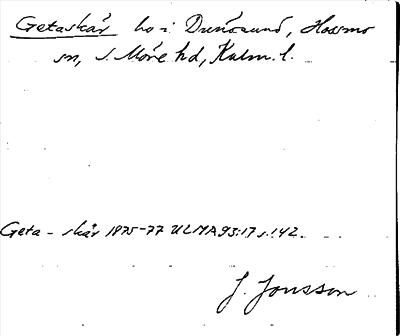 Getaskär ho i Drensund, Hossmo
sn, S. Möre hd, Kalm. l.
Geta - skär 1875-77 ULMA 93:17 s. 142.
J. Jonsson